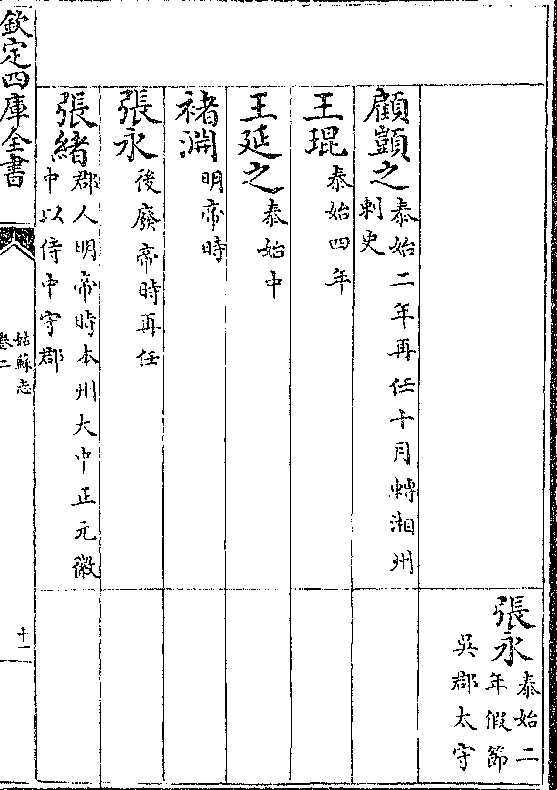 張永泰始二
年假節
吳郡太守
顧顗之泰始二年再任十月轉湘州
刺史
王琨泰始四年
王延之泰始中
褚淵明帝時
張永後廢帝時再任
張緒郡人明帝時本州大中正元徽
中以侍中守郡
欽定四庫全書
姑蘇志
卷二
十一